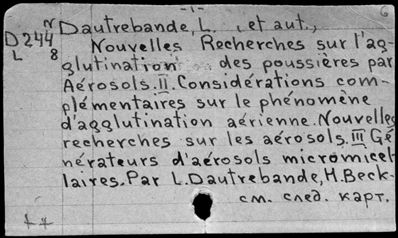 -1-
6
N
D244
L 8
Dautrebande, L. , et aut.,
Nouvelles Recherches sur l'ag-
glutination des poussières par
Aérosols. II. Considérations com-
plémentaires sur le phénomène
d'agglutination aérienne. Nouvelles
recherches sur les aérosols. III Gé
nérateurs d'aérosols micromicel
laires. Par L. Dautrebande, H. Beck-
см. след. карт.